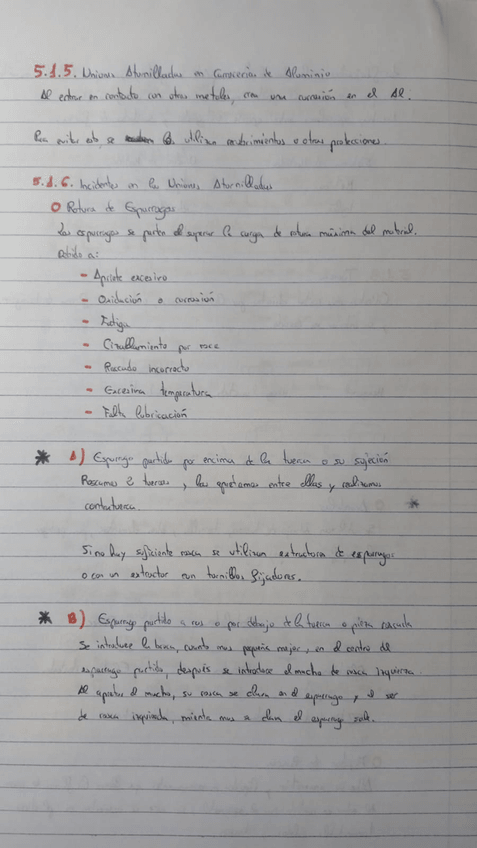 5.1.5. Uniones Atornilladas en Carrocería de Aluminio
Al entrar en contacto con otros metales, crea una corrosión en el Al.
Para evitar esto se utilizan recubrimientos o otras protecciones.
5.1.6. Incidentes en las Uniones Atornilladas
Rotura de Espárragos
Los espárragos se parten al superar la carga de rotura máxima del material.
Debido a:
- Apriete excesivo
- Oxidación o corrosión
- Fatiga
- Cizallamiento por roce
- Roscado incorrecto
- Excesiva temperatura
- Falta lubricación
* A) Espárrago partido por encima de la tuerca o su sujeción
Roscamos 2 tuercas, las apretamos entre ellas y realizamos
contratuerca. *
Si no hay suficiente rosca se utilizan extractores de espárragos
o con un extractor con tornillos fijadores.
* B) Espárrago partido a ras o por debajo de la tuerca o pieza roscada
Se introduce la broca, cuanto mas pequeña mejor, en el centro del
espárrago partido, después se introduce el macho de rosca izquierza
Al apretar el macho, su rosca se clava en el espárrago, y al ser
de rosca izquierda, mientras mas se clava el espárrago sale.